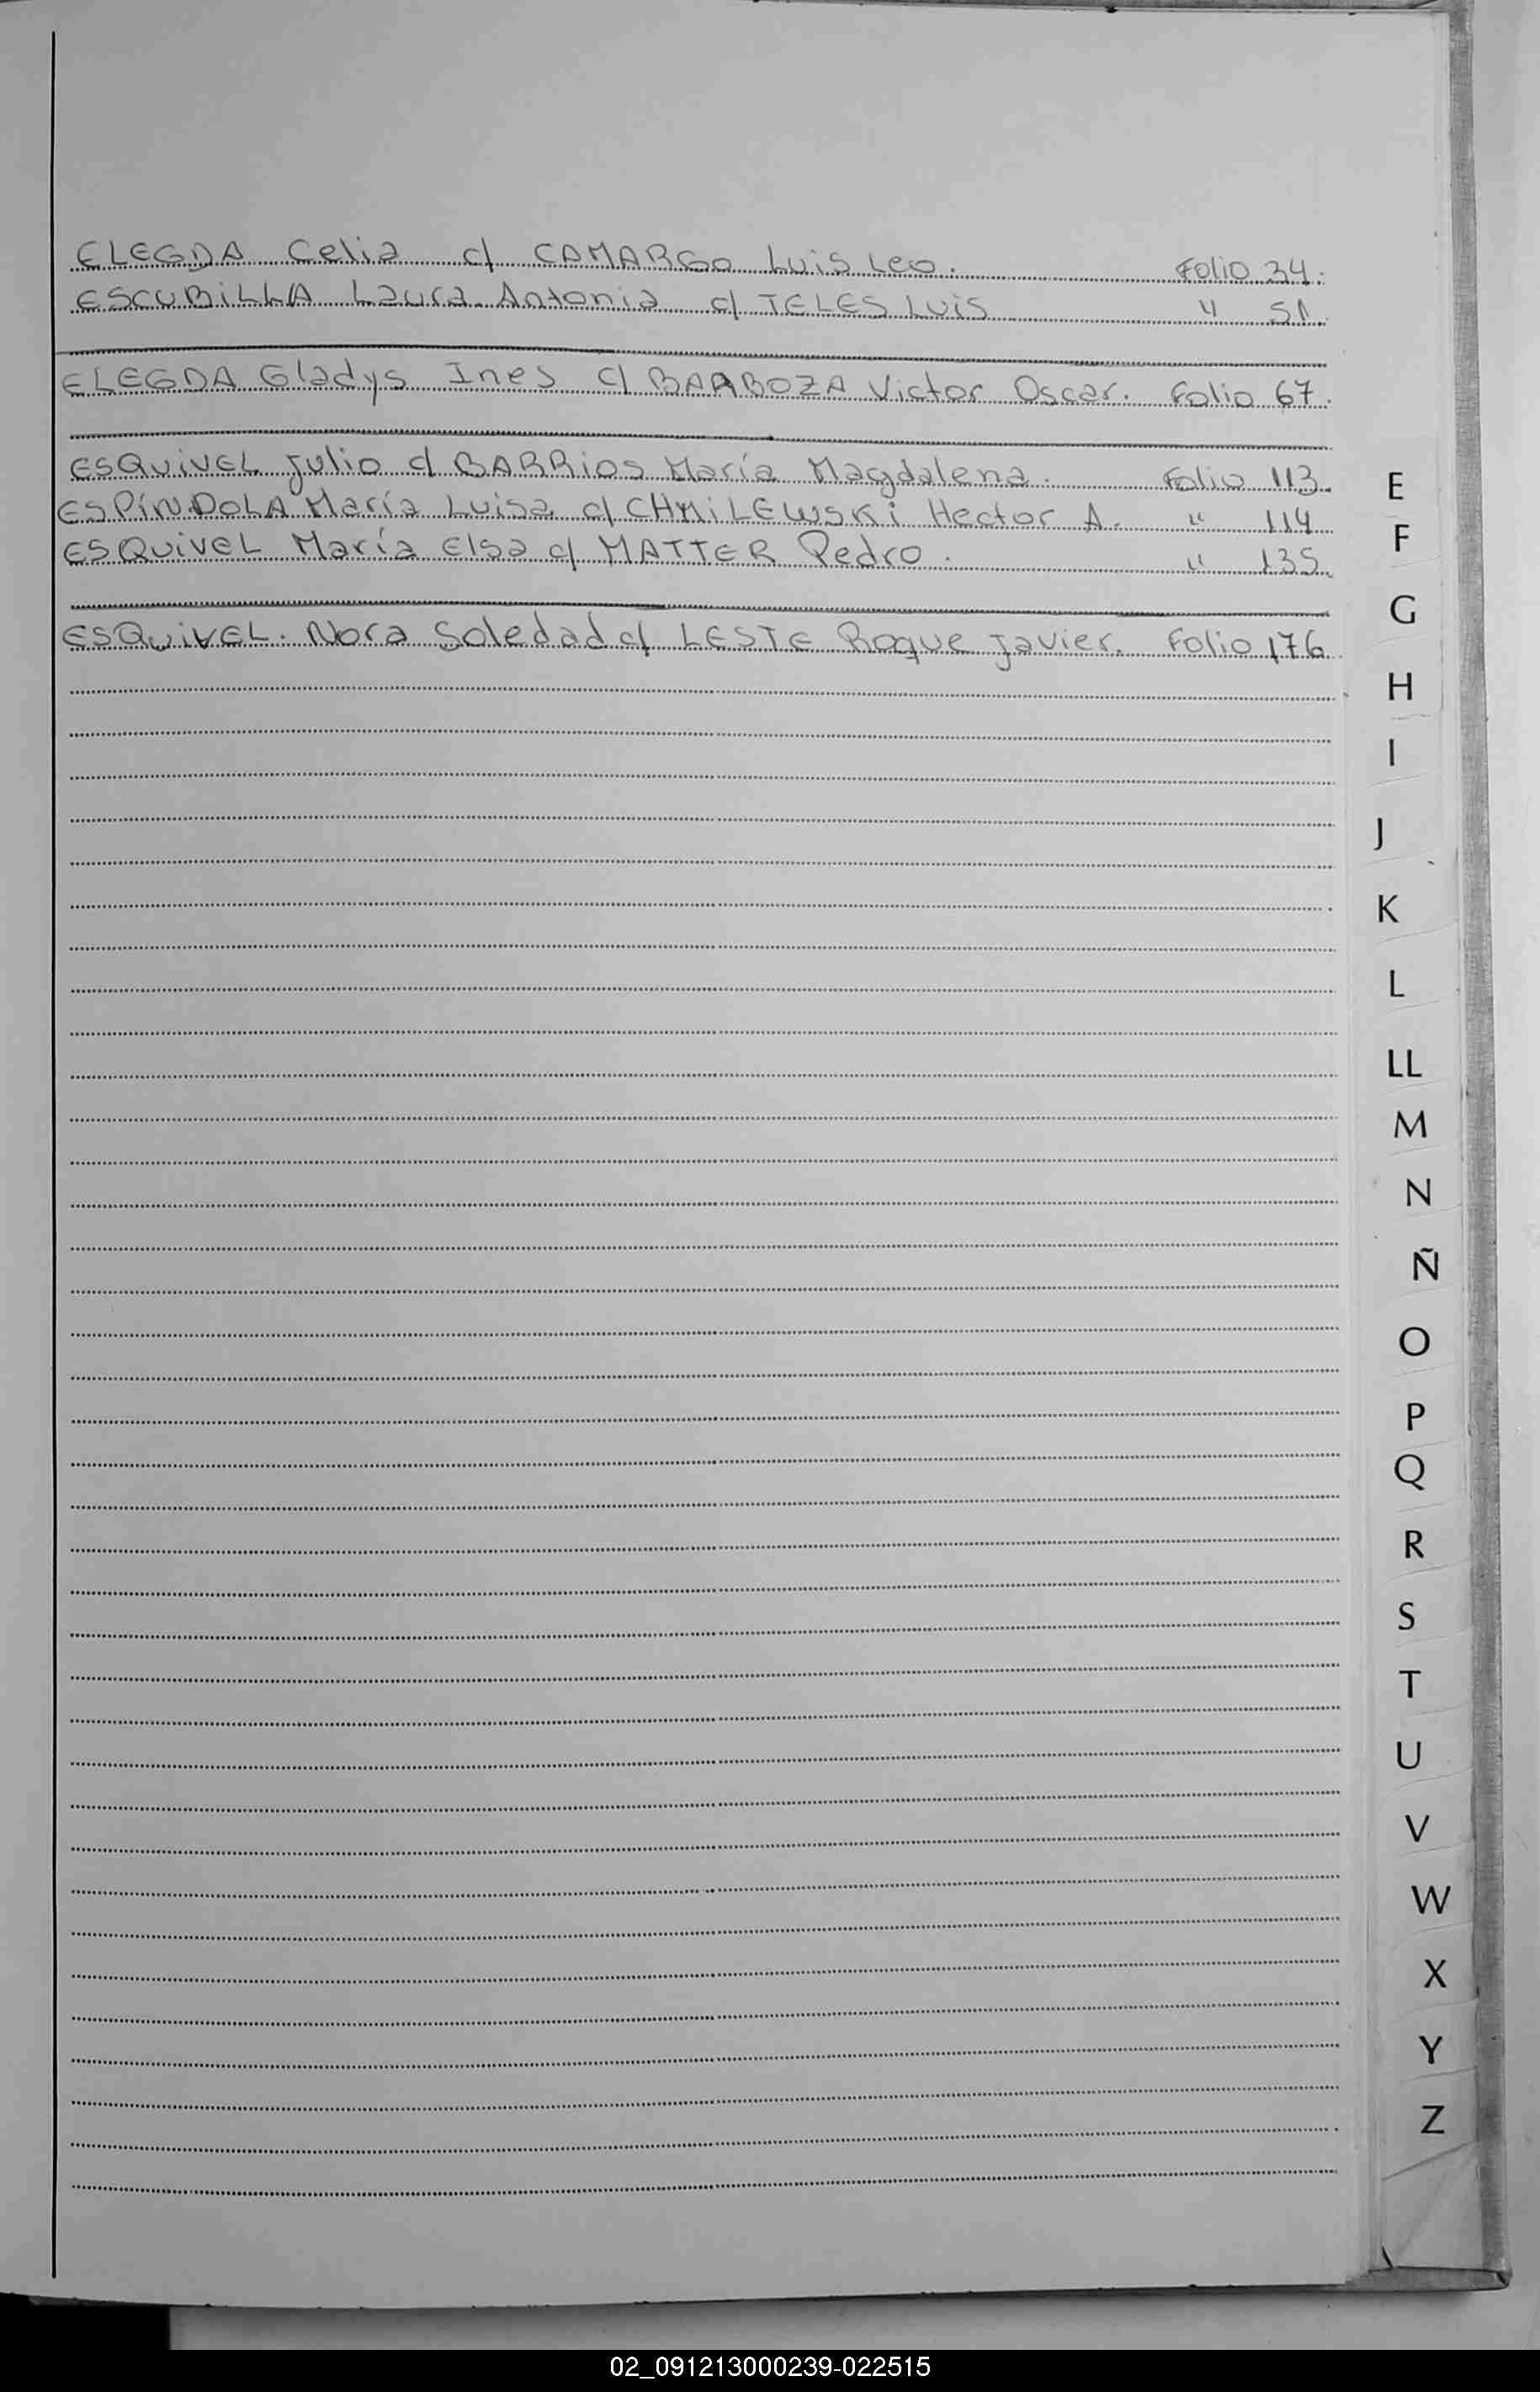 ELEGDA Celia c/ CAMARGO Luis Leo. Folio 34.
ESCUBILLA Laura Antonia c/ TELES Luis " 51.
ELEGDA Gladys Ines c/ BARBOZA Victor Oscar. Folio 67.
ESQUIVEL Julio c/ BARRIOS María Magdalena. Folio 113.
ESPÍNDOLA María Luisa c/ CHMILEWSKI Hector A. " 114
ESQUIVEL María Elsa c/ MATTER Pedro. " 135.
ESQUIVEL. Nora Soledad c/ LESTE Roque Javier. Folio 176.
E
F
G
H
I
J
K
L
LL
M
N
Ñ
O
P
Q
R
S
T
U
V
W
X
Y
Z
02_091213000239-022515